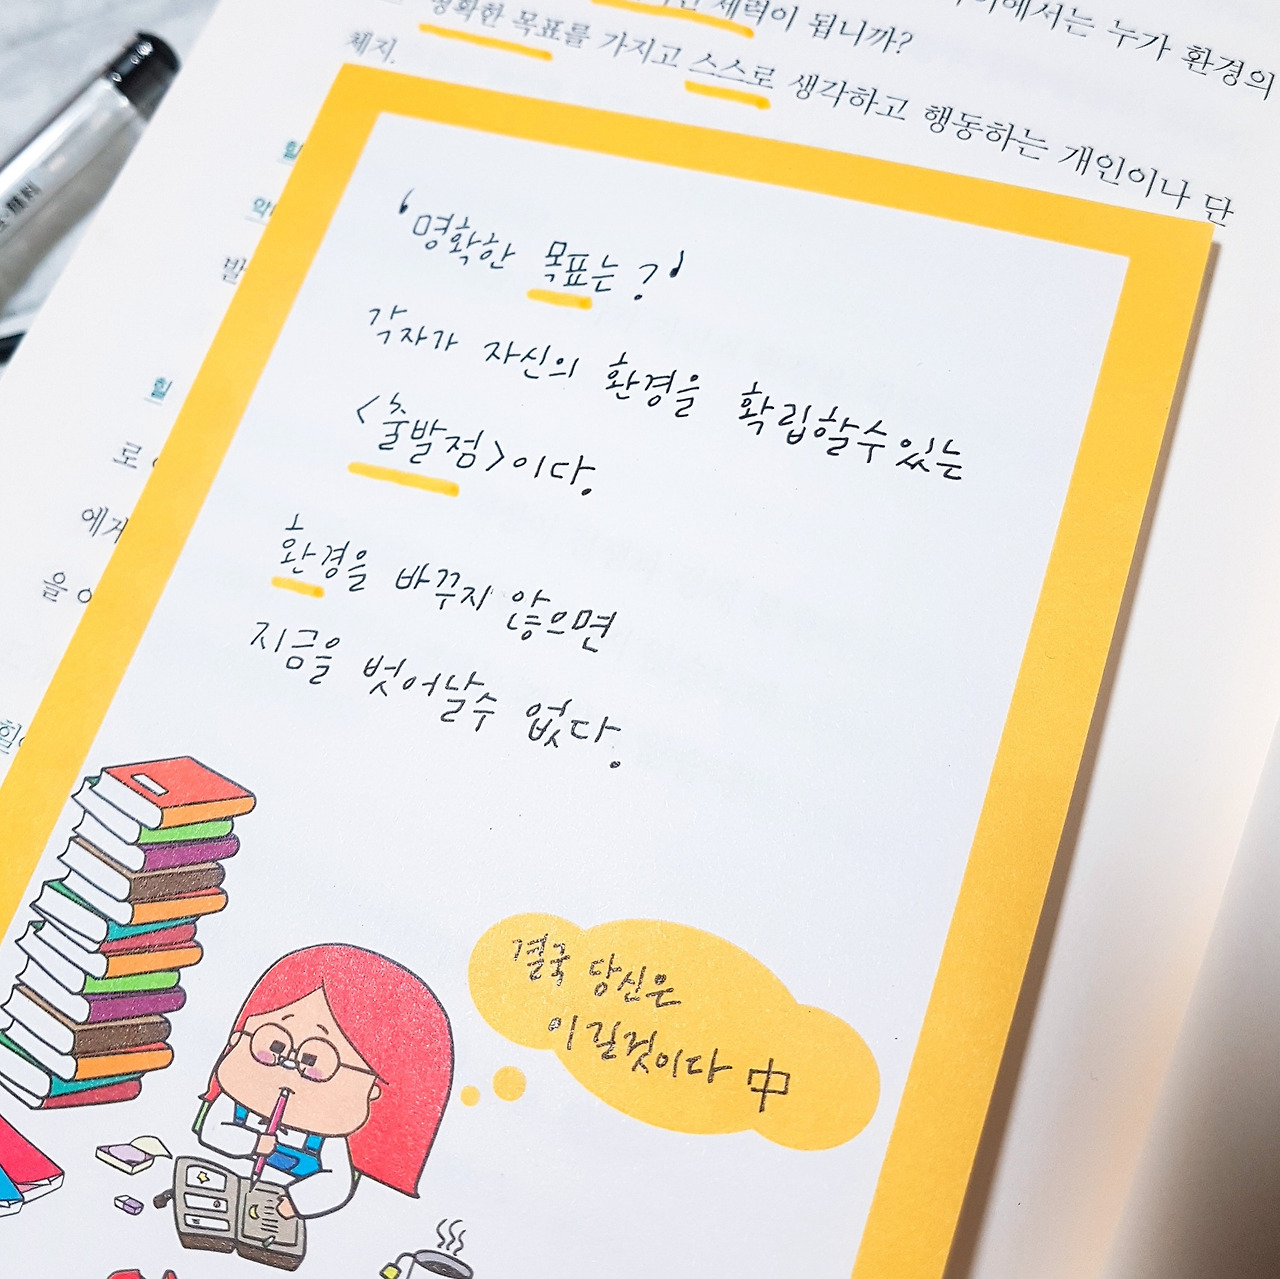 세력이 됩니까?
에서는 누가 환경의
명확한 목표를 가지고 스스로 생각하고 행동하는 개인이나 단
체지.
힐
발
힐
로
에게
을
'명확한 목표는?'
각자가 자신의 환경을 확립할수있는
<출발점>이다.
환경을 바꾸지 않으면
지금을 벗어날수 없다.
결국 당신은
이길것이다 中